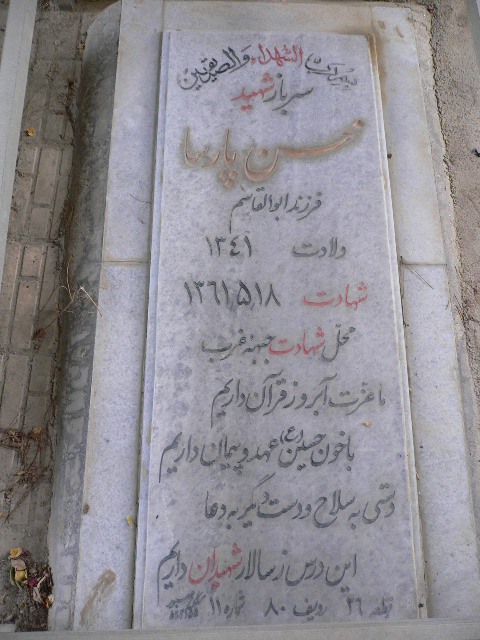 الشهداء والصدیقین
سرباز شهید
حسن پارسا
فرزند ابوالقاسم
ولادت ۱۳۴۱
شهادت ۱۳۶۱/۵/۱۸
محل شهادت جبهه غرب
ما عزت و آبرو ز قرآن داریم
با خون حسین (ع) عهد و پیمان داریم
دستی به سلاح و دست دیگر به دعا
این درس ز سالار شهیدان داریم
قطعه ۲۶ ردیف ۸۰ شماره ۱۱